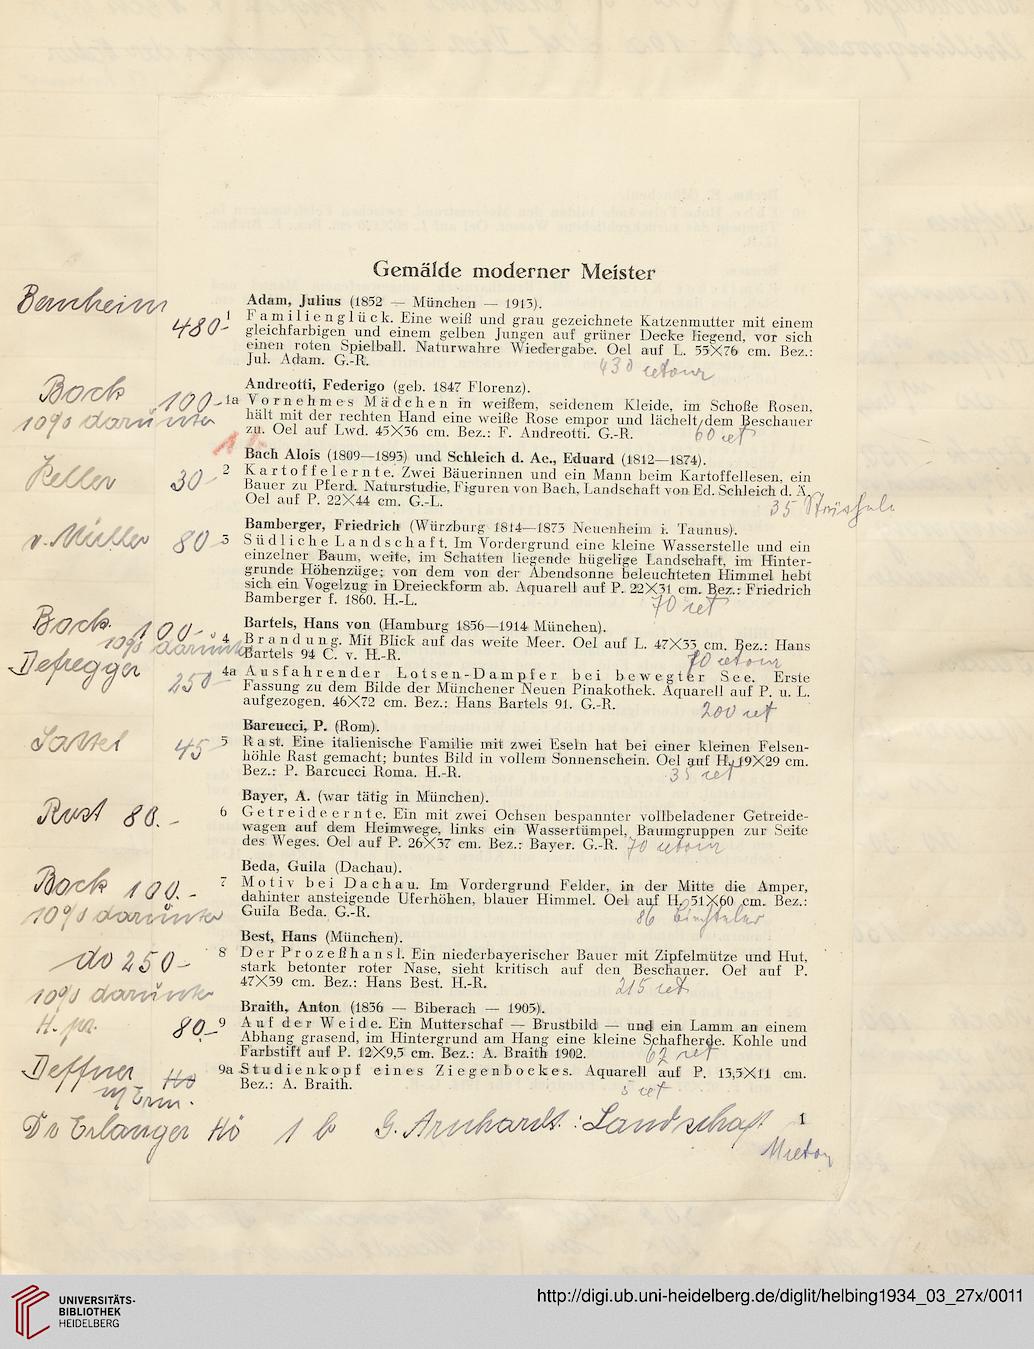 Gemälde moderner Meister
Bernheim
Adam, Julius (1852 — München — 1913).
480.- 1 Familienglück. Eine weiß und grau gezeichnete Katzenmutter mit einem
gleichfarbigen und einem gelben Jungen auf grüner Decke liegend, vor sich
einen roten Spielball. Naturwahre Wiedergabe. Oel auf L. 55×76 cm. Bez.:
Jul. Adam. G.-R.
430 retour
Andreotti, Federigo (geb. 1847 Florenz).
Bock 100.- 1a Vornehmes Mädchen in weißem, seidenem Kleide, im Schoße Rosen,
10% darunter
hält mit der rechten Hand eine weiße Rose empor und lächelt dem Beschauer
zu. Oel auf Lwd. 45×36 cm. Bez.: F. Andreotti. G.-R.
60 ret
1 b
Bach Alois (1809—1893) und Schleich d. Ae., Eduard (1812—1874).
Keller 30- 2 Kartoffelernte. Zwei Bäuerinnen und ein Mann beim Kartoffellesen, ein
Bauer zu Pferd. Naturstudie, Figuren von Bach, Landschaft von Ed. Schleich d. Ä.
Oel auf P. 22×44 cm. G.-L.
35
Bamberger, Friedrich (Würzburg 1814—1873 Neuenheim i. Taunus).
v. Müller 80- 3 Südliche Landschaft. Im Vordergrund eine kleine Wasserstelle und ein
einzelner Baum, weite, im Schatten liegende hügelige Landschaft, im Hinter-
grunde Höhenzüge; von dem von der Abendsonne beleuchteten Himmel hebt
sich ein Vogelzug in Dreieckform ab. Aquarell auf P. 22×31 cm. Bez.: Friedrich
Bamberger f. 1860. H.-L.
70 ret
Bartels, Hans von (Hamburg 1856—1914 München).
Bock 100.-
10% darunter
4 Brandung. Mit Blick auf das weite Meer. Oel auf L. 47×33 cm. Bez.: Hans
Bartels 94 C. v. H.-R.
70 retour
Defregger 250- 4a Ausfahrender Lotsen-Dampfer bei bewegter See. Erste
Fassung zu dem Bilde der Münchener Neuen Pinakothek. Aquarell auf P. u. L.
aufgezogen. 46×72 cm. Bez.: Hans Bartels 91. G.-R.
200 ret
Barcucci, P. (Rom).
45 5 Rast. Eine italienische Familie mit zwei Eseln hat bei einer kleinen Felsen-
höhle Rast gemacht; buntes Bild in vollem Sonnenschein. Oel auf H. 19×29 cm.
Bez.: P. Barcucci Roma. H.-R.
35 ret
Bayer, A. (war tätig in München).
Rust 80.- 6 Getreideernte. Ein mit zwei Ochsen bespannter vollbeladener Getreide-
wagen auf dem Heimwege, links ein Wassertümpel, Baumgruppen zur Seite
des Weges. Oel auf P. 26×37 cm. Bez.: Bayer. G.-R.
70 retour
Beda, Guila (Dachau).
Bock 100.- 7 Motiv bei Dachau. Im Vordergrund Felder, in der Mitte die Amper,
dahinter ansteigende Uferhöhen, blauer Himmel. Oel auf H. 51×60 cm. Bez.:
10% darunter
Guila Beda. G.-R.
86
Best, Hans (München).
do 250- 8 Der Prozeßhansl. Ein niederbayerischer Bauer mit Zipfelmütze und Hut,
stark betonter roter Nase, sieht kritisch auf den Beschauer. Oel auf P.
47×39 cm. Bez.: Hans Best. H.-R.
10% darunter
215 ret
Braith, Anton (1836 — Biberach — 1905).
80.- 9 Auf der Weide. Ein Mutterschaf — Brustbild — und ein Lamm an einem
Abhang grasend, im Hintergrund am Hang eine kleine Schafherde. Kohle und
Farbstift auf P. 12×9,5 cm. Bez.: A. Braith 1902.
62 ret
Deffner 9a Studienkopf eines Ziegenbockes. Aquarell auf P. 13,5×11 cm.
Bez.: A. Braith.
5 ret
Dr Erlanger 1 b G. Arnhardt: Landschaft
1
UNIVERSITÄTS-
BIBLIOTHEK
HEIDELBERG
http://digi.ub.uni-heidelberg.de/diglit/helbing1934_03_27x/0011